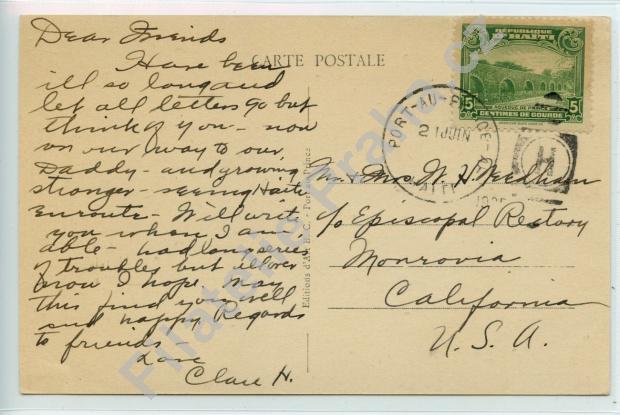 Dear Friends
Have been
ill so long and
let all letters go but
think of you - now
on our way to our
Daddy - and growing
stronger - seeing Haiti
enroute - Will write
you when I am
able - had long series
of troubles but all over
now I hope. May
this find you well
and happy. Regards
to friends -
Love
Clare H.
CARTE POSTALE
Editions d'Art
REPUBLIQUE
D'HAITI
5 5
CENTIMES DE GOURDE
PORT-AU-PRINCE
21 JUIN
HAITI
Mr. & Mrs. W. H. Needham
c/o Episcopal Rectory
Monrovia
California
U.S.A.
Filatelie Praha cz